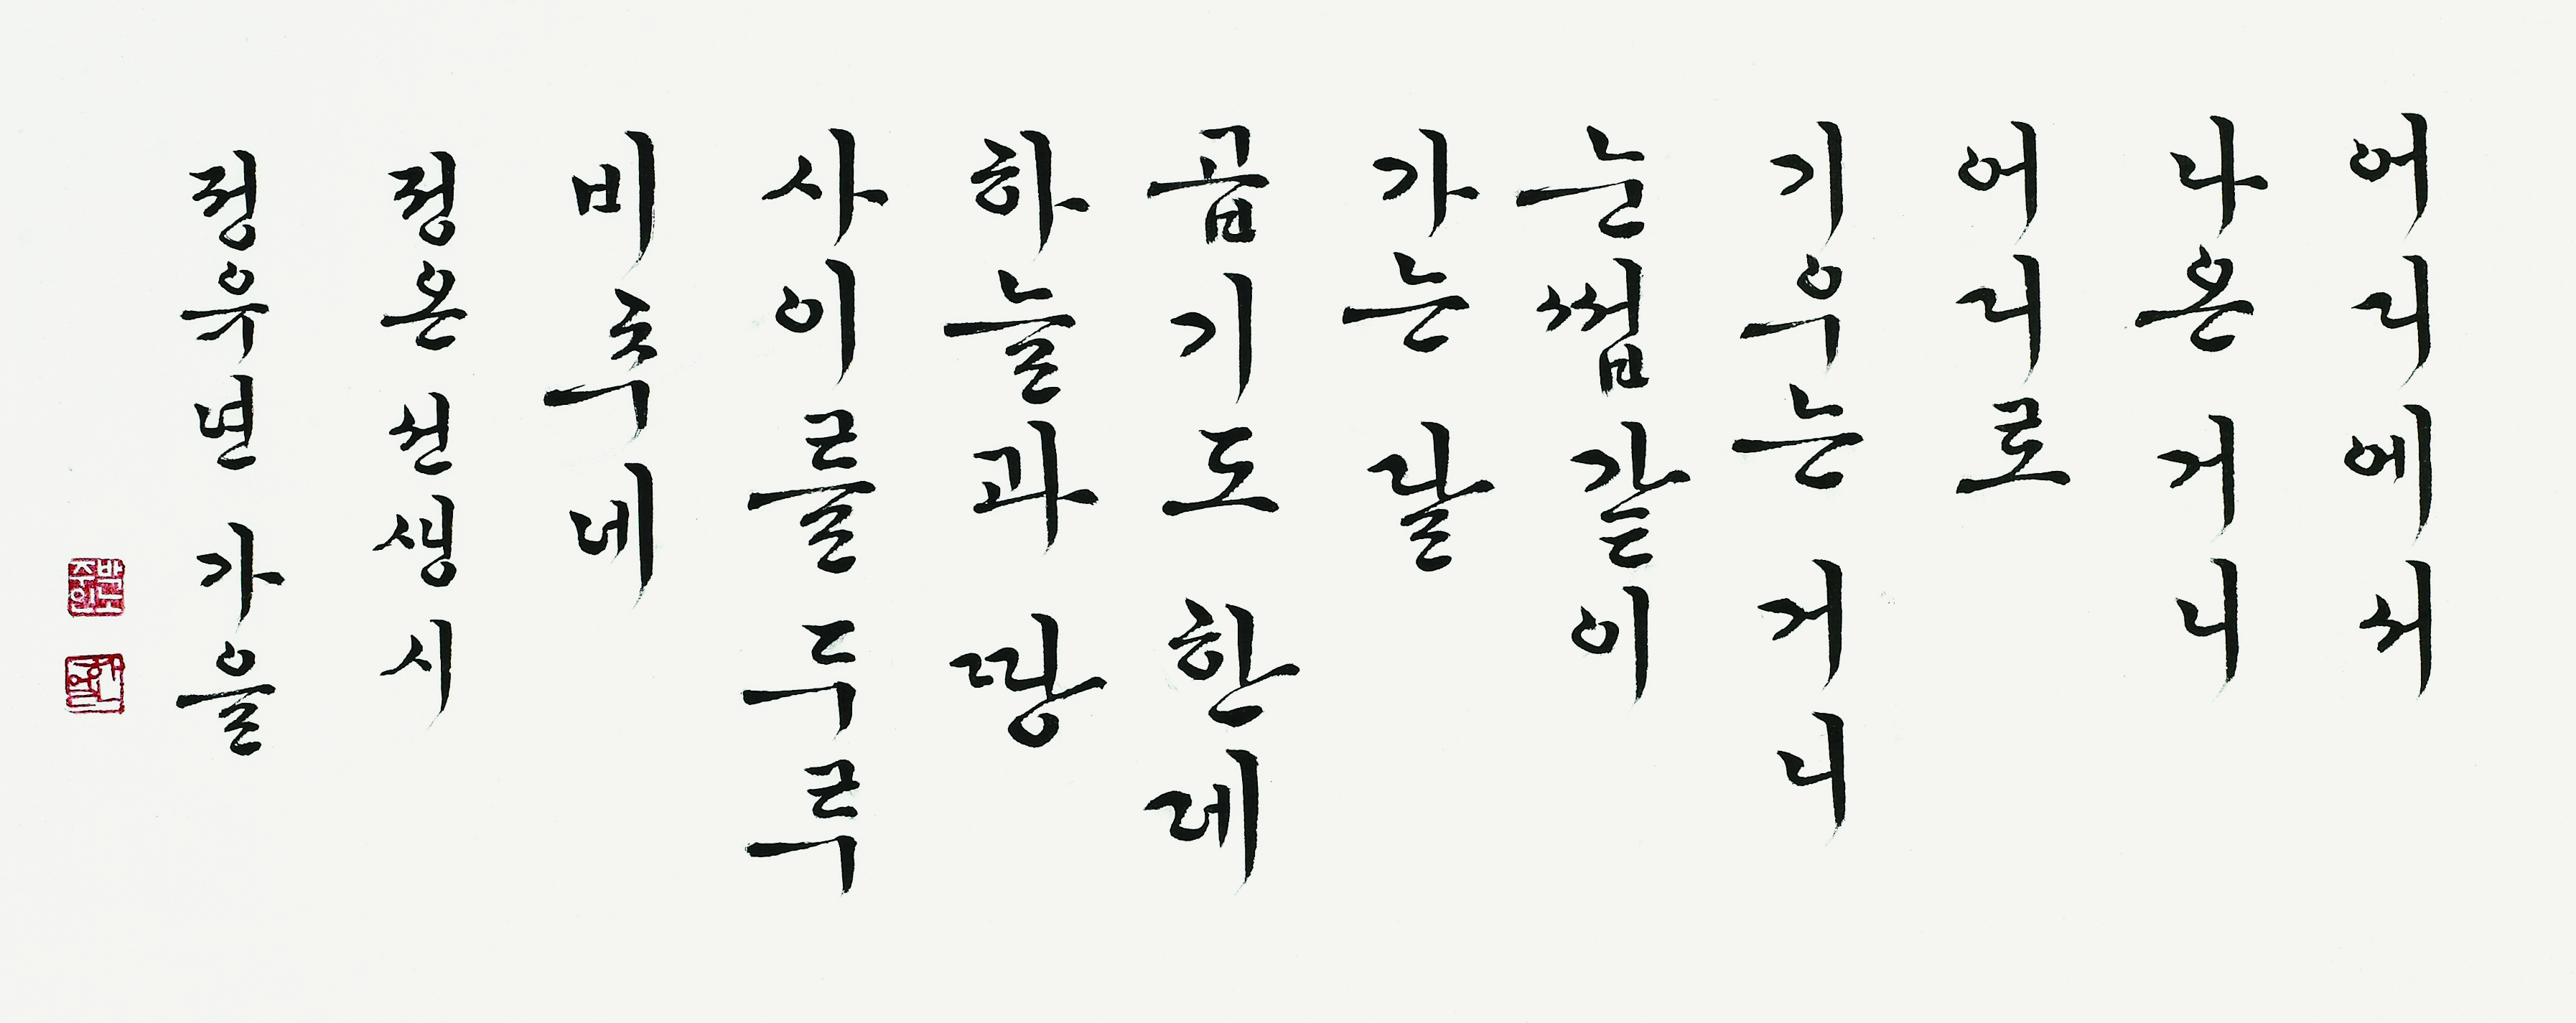 어디에서
나온 거니
어디로
기우는 거니
는썹같이
가는 달
곱기도 한데
하늘과 땅
사이를 두루
비추네
정온 선생 시
정유년 가을